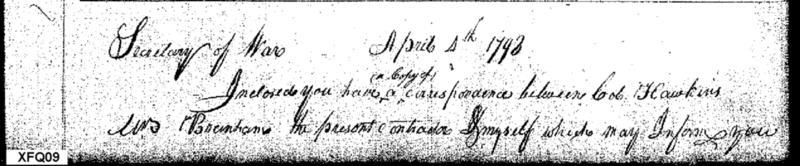 Secretary of War April 4th 1798
(a Copy of)
Inclosed you have a correspondence between Col. Hawkins
Mrs Brenham the present Contractor & myself which may Inform you
XFQ09